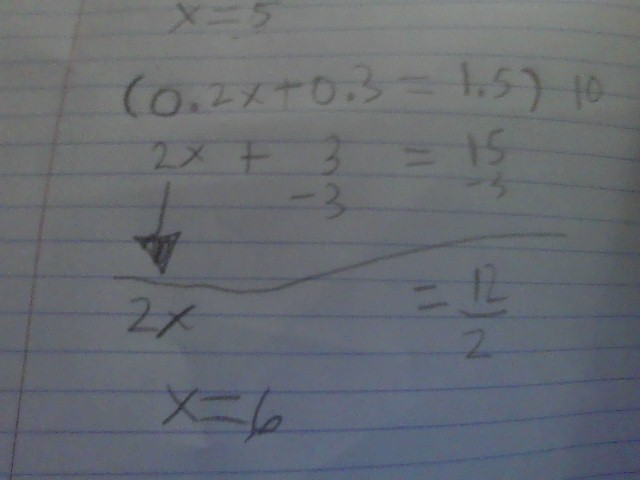 x=5
(0.2x+0.3 = 1.5) 10
2x + 3 = 15
-3 -3
2x = 12
2
x=6